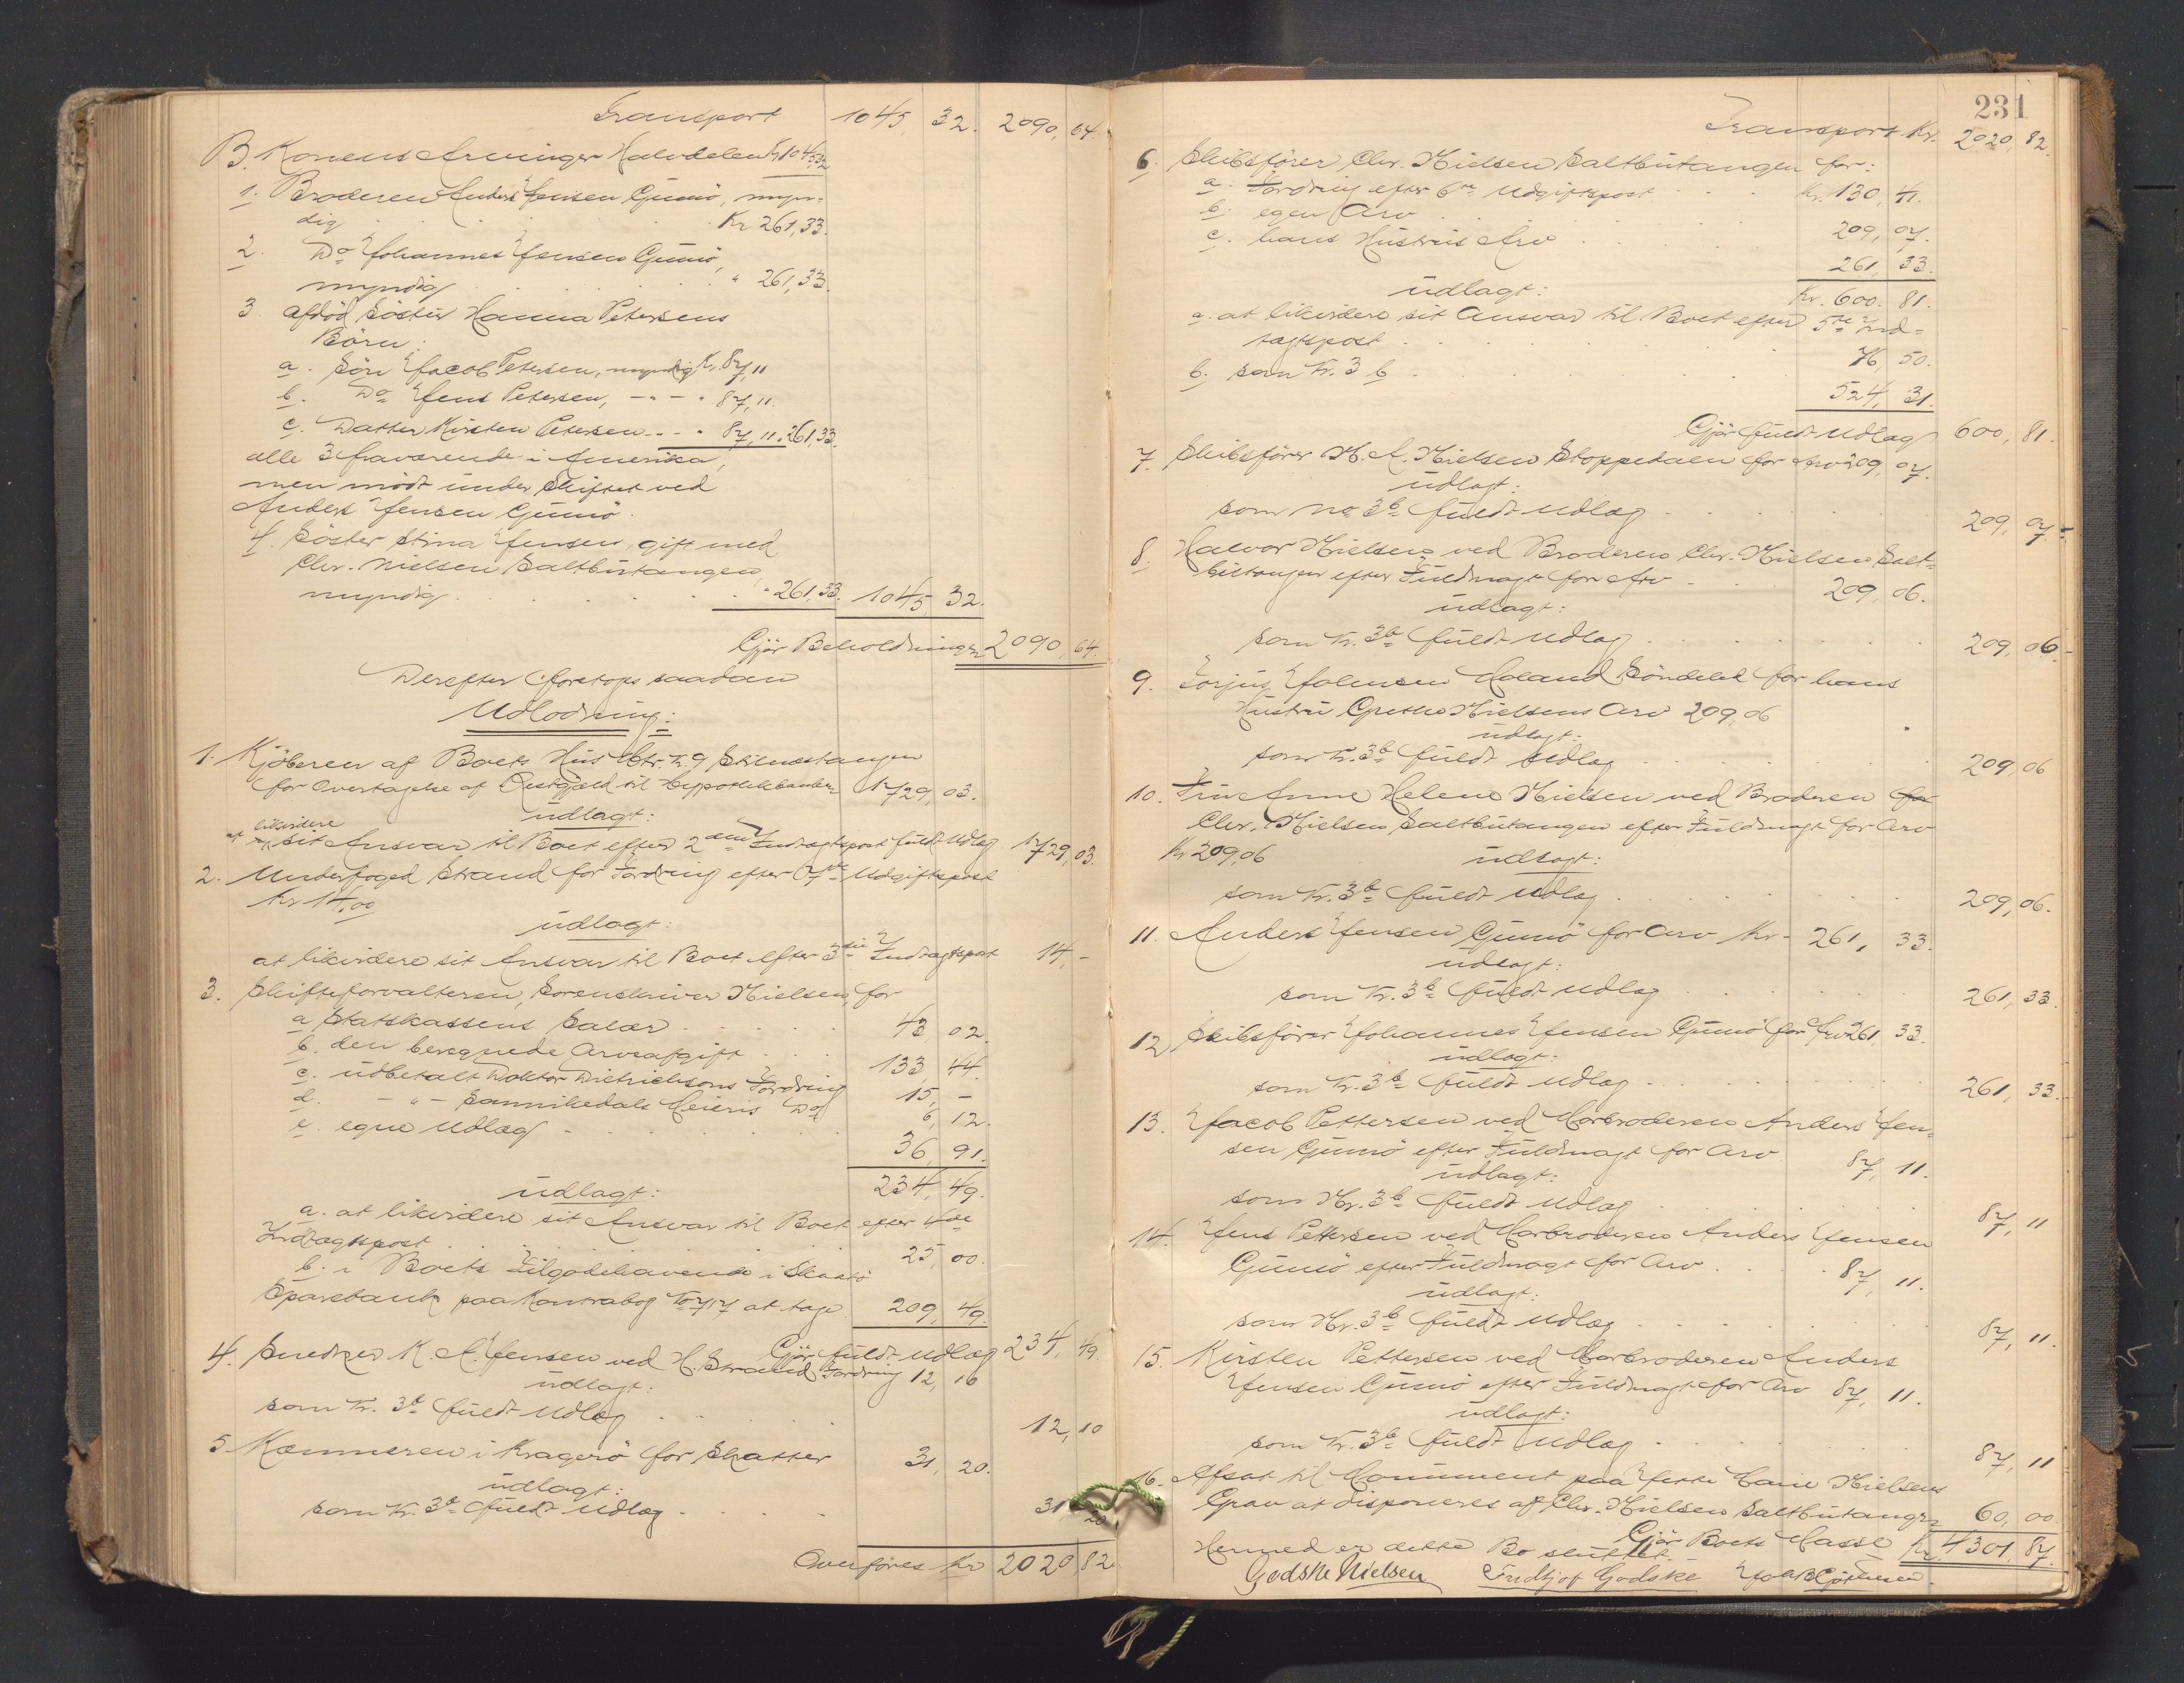 Transport 1045, 32. 2090, 64.
B. Konens Arvinger Halvdelen Kr 1045,32
1. Broderen Anders Jensen Gumö, myn-
dig . . . . Kr 261,33.
2. Do Johannes Jensen Gumö,
myndig . . . . " 261,33.
3. afdöd Söster Hanna Petersens
Börn:
a. Sön Jacob Petersen, myndig Kr. 87,11
b. Do Jens Petersen, - " - " 87,11.
c. Datter Kirsten Petersen - " - " 87,11. 261,33.
alle 3 fraværende i Amerika,
men mödt under Skiftet ved
Anders Jensen Gumö.
4. Söster Stina Jensen, gift med
Chr. Nielsen Saltbutangen,
myndig . . . . " 261,33. 1045, 32.
Gjör Beholdningen 2090, 64.
Derefter foretoges saadan
Udlodning:
1. Kjöberen af Boets Hus Mtr. N. 9
for Overtagelse af Restgjæld til Hypothekbanken 1729, 03.
udlagt:
at likvidere sit Ansvar til Boet efter 2den Indtægtspost fuldt Udlæg 1729, 03.
2. Underfoged Strand for Fordring efter 7de Udgiftspost
Kr 14,00
udlagt:
at likvidere sit Ansvar til Boet efter 3die Indtægtspost 14, -
3. Skifteforvalteren, Sorenskriver Nielsen, for
a. Statskassens Salær . . . . 43, 02.
b. den beregnede Arveafgift . . . 133, 44.
c. udbetalt Doktor Dietrichsons Fordring 15, -
d. - " - Sannikedals Meieris Do 6, 12.
e. egne Udlæg . . . . 36, 91.
234, 49.
udlagt:
a. at likvidere sit Ansvar til Boet efter 4de
Indtægtspost . . . . 25, 00.
b. i Boets Tilgodehavende i Skaatö
Sparebank paa Kontrabog No 717 at tage 209, 49.
Gjör fuldt Udlæg 234, 49.
4. Snedker K. A. Jensen ved H. Strand Fordring 12, 10
udlagt:
som Nr. 3b fuldt Udlæg . . . . 12, 10
5. Kæmneren i Kragerö for Skatter 31, 20.
udlagt:
som Nr. 3b fuldt Udlæg . . . . 31 20.
Overföres Kr 2020, 82.
231
Transport Kr. 2020, 82.
6. Skibsförer Chr. Nielsen Saltbutangen for:
a. Fordring efter 6te Udgiftspost . . . Kr. 130, 41.
b. egen Arv . . . . 209, 07.
c. hans Hustrus Arv . . . . 261, 33.
udlagt: Kr. 600. 81.
a. at likvidere sit Ansvar til Boet efter 5te Ind-
tægtspost . . . . 76, 50.
b. som Nr. 3 b . . . . 524, 31.
Gjör fuldt Udlæg 600, 81.
7. Skibsförer N. A. Nielsen Stoppedalen for Arv 209, 07.
udlagt:
som No 3b fuldt Udlæg . . . . 209, 07.
8. Halvor Nielsen ved Broderen Chr. Nielsen Salt-
butangen efter Fuldmagt for Arv . . 209, 06.
udlagt:
som Nr. 3b fuldt Udlæg . . . . 209, 06.
9. Torjus Johnsen Söndeled for hans
Hustru Grethe Nielsens Arv 209,06
udlagt:
som Nr. 3b fuldt Udlæg . . . . 209, 06
10. Fru Anne Helene Nielsen ved Broderen for
Chr. Nielsen Saltbutangen efter Fuldmagt for Arv
Kr 209,06 udlagt:
som Nr. 3b fuldt Udlæg . . . . 209, 06.
11. Anders Jensen Gumö for Arv Kr - 261, 33.
udlagt:
som Nr. 3b fuldt Udlæg . . . . 261, 33.
12. Skibsförer Johannes Jensen Gumö for Arv 261, 33.
udlagt:
som Nr. 3b fuldt Udlæg . . . . 261, 33.
13. Jacob Pettersen ved Morbroderen Anders Jen-
sen Gumö efter Fuldmagt for Arv 87, 11.
udlagt:
som Nr. 3b fuldt Udlæg . . . . 87, 11
14. Jens Pettersen ved Morbroderen Anders Jensen
Gumö efter Fuldmagt for Arv . . . 87, 11.
udlagt:
som Nr. 3b fuldt Udlæg . . . . 87, 11.
15. Kirsten Pettersen ved Morbroderen Anders
Jensen Gumö efter Fuldmagt for Arv 87, 11.
udlagt:
som Nr. 3b fuldt Udlæg . . . . 87, 11
16. Afsat til Monument paa Marie Nielsens
Grav at disponeres af Chr. Nielsen Saltbutangen 60, 00.
Gjör Boets Masse Kr. 4301, 87.
Hermed er dette Bo sluttet.
Godske Nielsen Fridtjof Godske